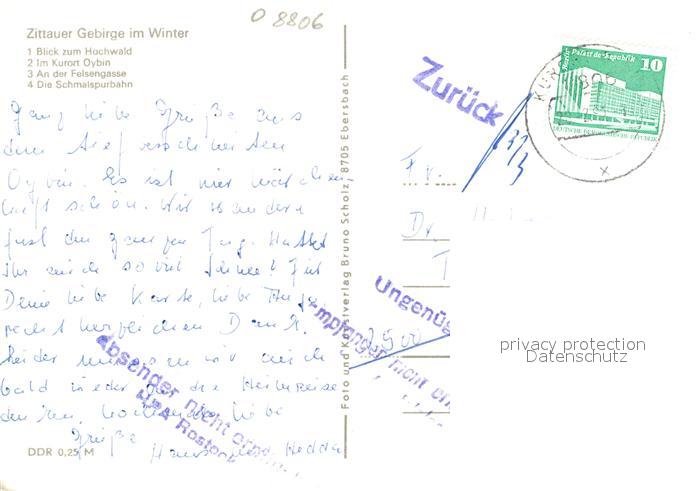 O 8806
Zittauer Gebirge im Winter
1 Blick zum Hochwald
2 Im Kurort Oybin
3 An der Felsengasse
4 Die Schmalspurbahn
Ganz liebe Grüße aus
dem tief verschneiten
Oybin. Es ist hier märchen
haft schön. Wir wandern
fast den ganzen Tag. Hattet
Ihr auch so viel Schnee? Für
Deine liebe Karte, liebe
recht herzlichen Dank.
Leider müssen wir auch
bald wieder die Heimreise
liebe
Grüße
Hans und Hedda
DDR 0,25 M
Foto und Kunstverlag Bruno Scholz, 8705 Ebersbach
Zurück
Berlin Palast der Republik
10
DEUTSCHE DEMOKRATISCHE REPUBLIK
KUR
806
Fr.
Dr.
T
2500
Ungenüg
Empfänger nicht erm
Absender nicht erm
HPA Rostock
privacy protection
Datenschutz